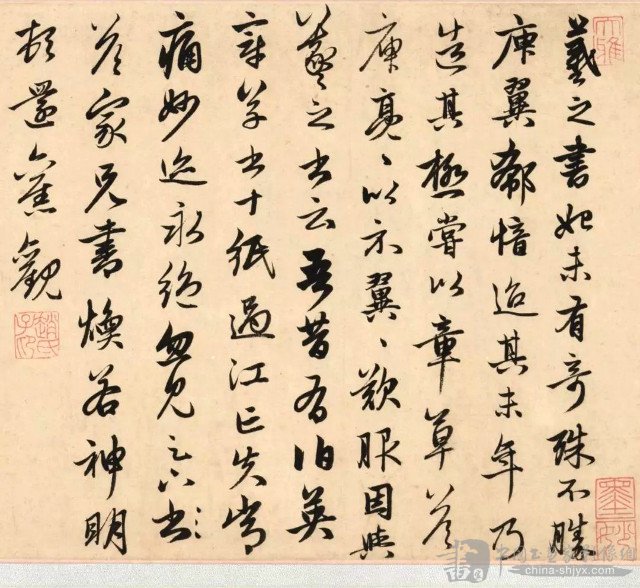 羲之書始未有奇殊不勝
庾翼郗愔迨其末年乃
造其極嘗以章草答
庾亮、以示翼、歎服因與
羲之書云吾昔有伯英
章草書十紙過江亡失常
痛妙迹永絕忽見足下書
答家兄書煥若神明
頓還舊觀
大雅
趙氏子昂
china-shjyx.com